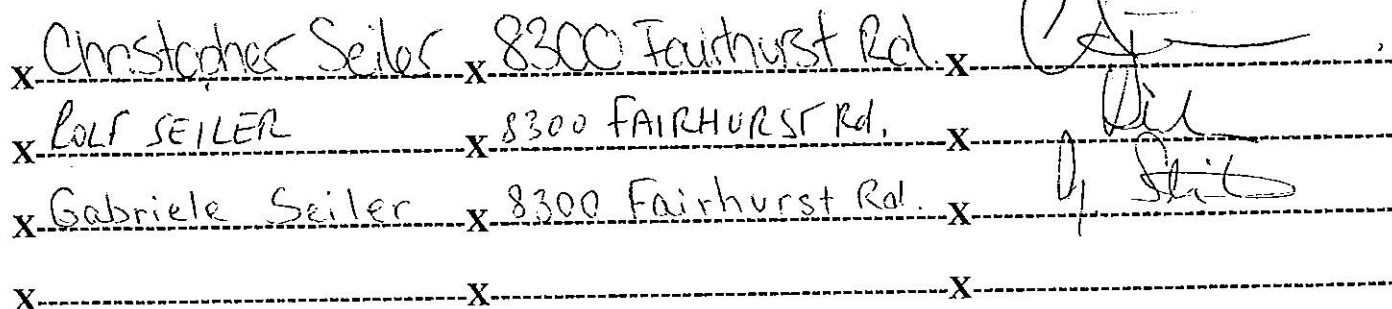 X Christopher Seiler X 8300 Fairhurst Rd. X
X ROLF SEILER X 8300 FAIRHURST Rd. X
X Gabriele Seiler X 8300 Fairhurst Rd. X
X X X